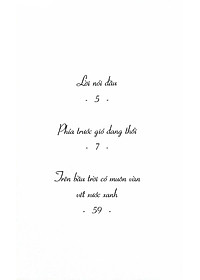 Lời nói đầu
- 5 -
Phía trước gió đang thổi
- 7 -
Trên bầu trời có muôn vàn
vết nước xanh
- 59 -